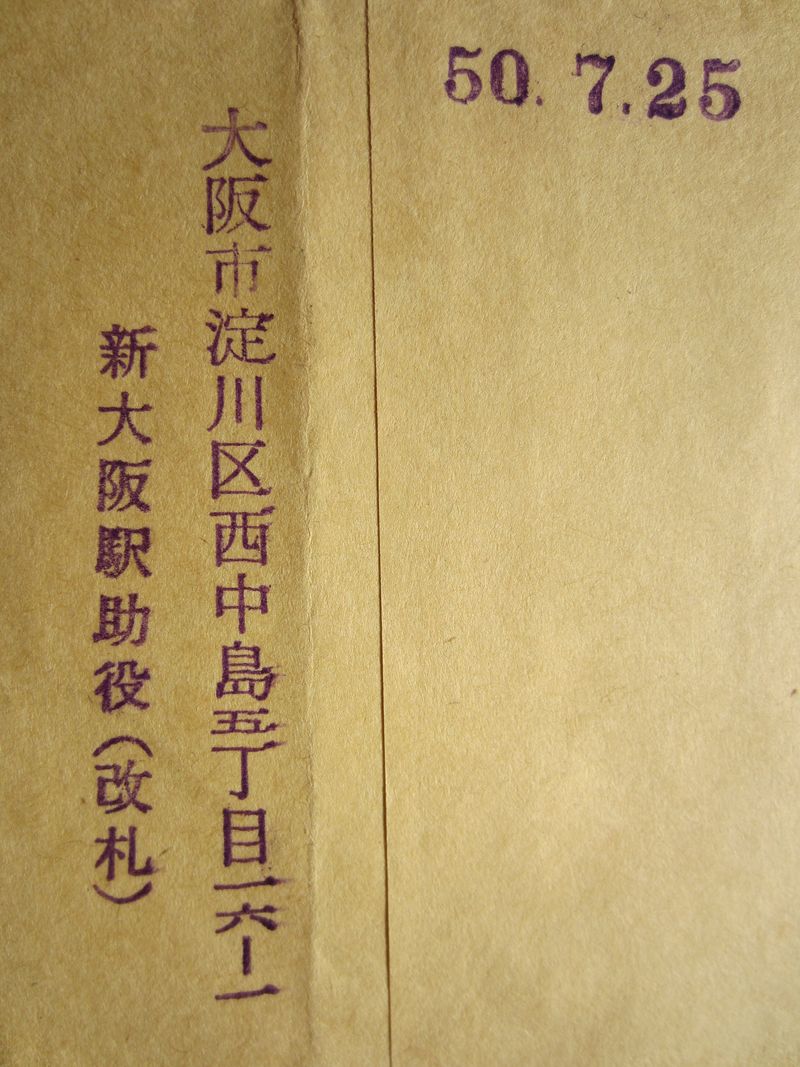 50.7.25
大阪市淀川区西中島五丁目一六ー一
新大阪駅助役（改札）